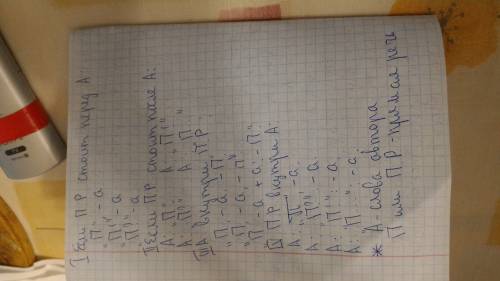 I Если П.Р стоит перед А
„П", - а.
„П!" - а.
„П?" - а.
II Если ПР стоит после А:
А: „П". А: „П!"
А: „П?" А: „П..."
III А внутри ПР.
„П, - а. - П".
„П, - а, - п".
„П, - а + а: - П".
IV ПР внутри А:
А: „П", - а.
А: „П?" - а.
А: „П!" - а.
А: „П..." - а.
* А - слова автора
П или П.Р - прямая речь